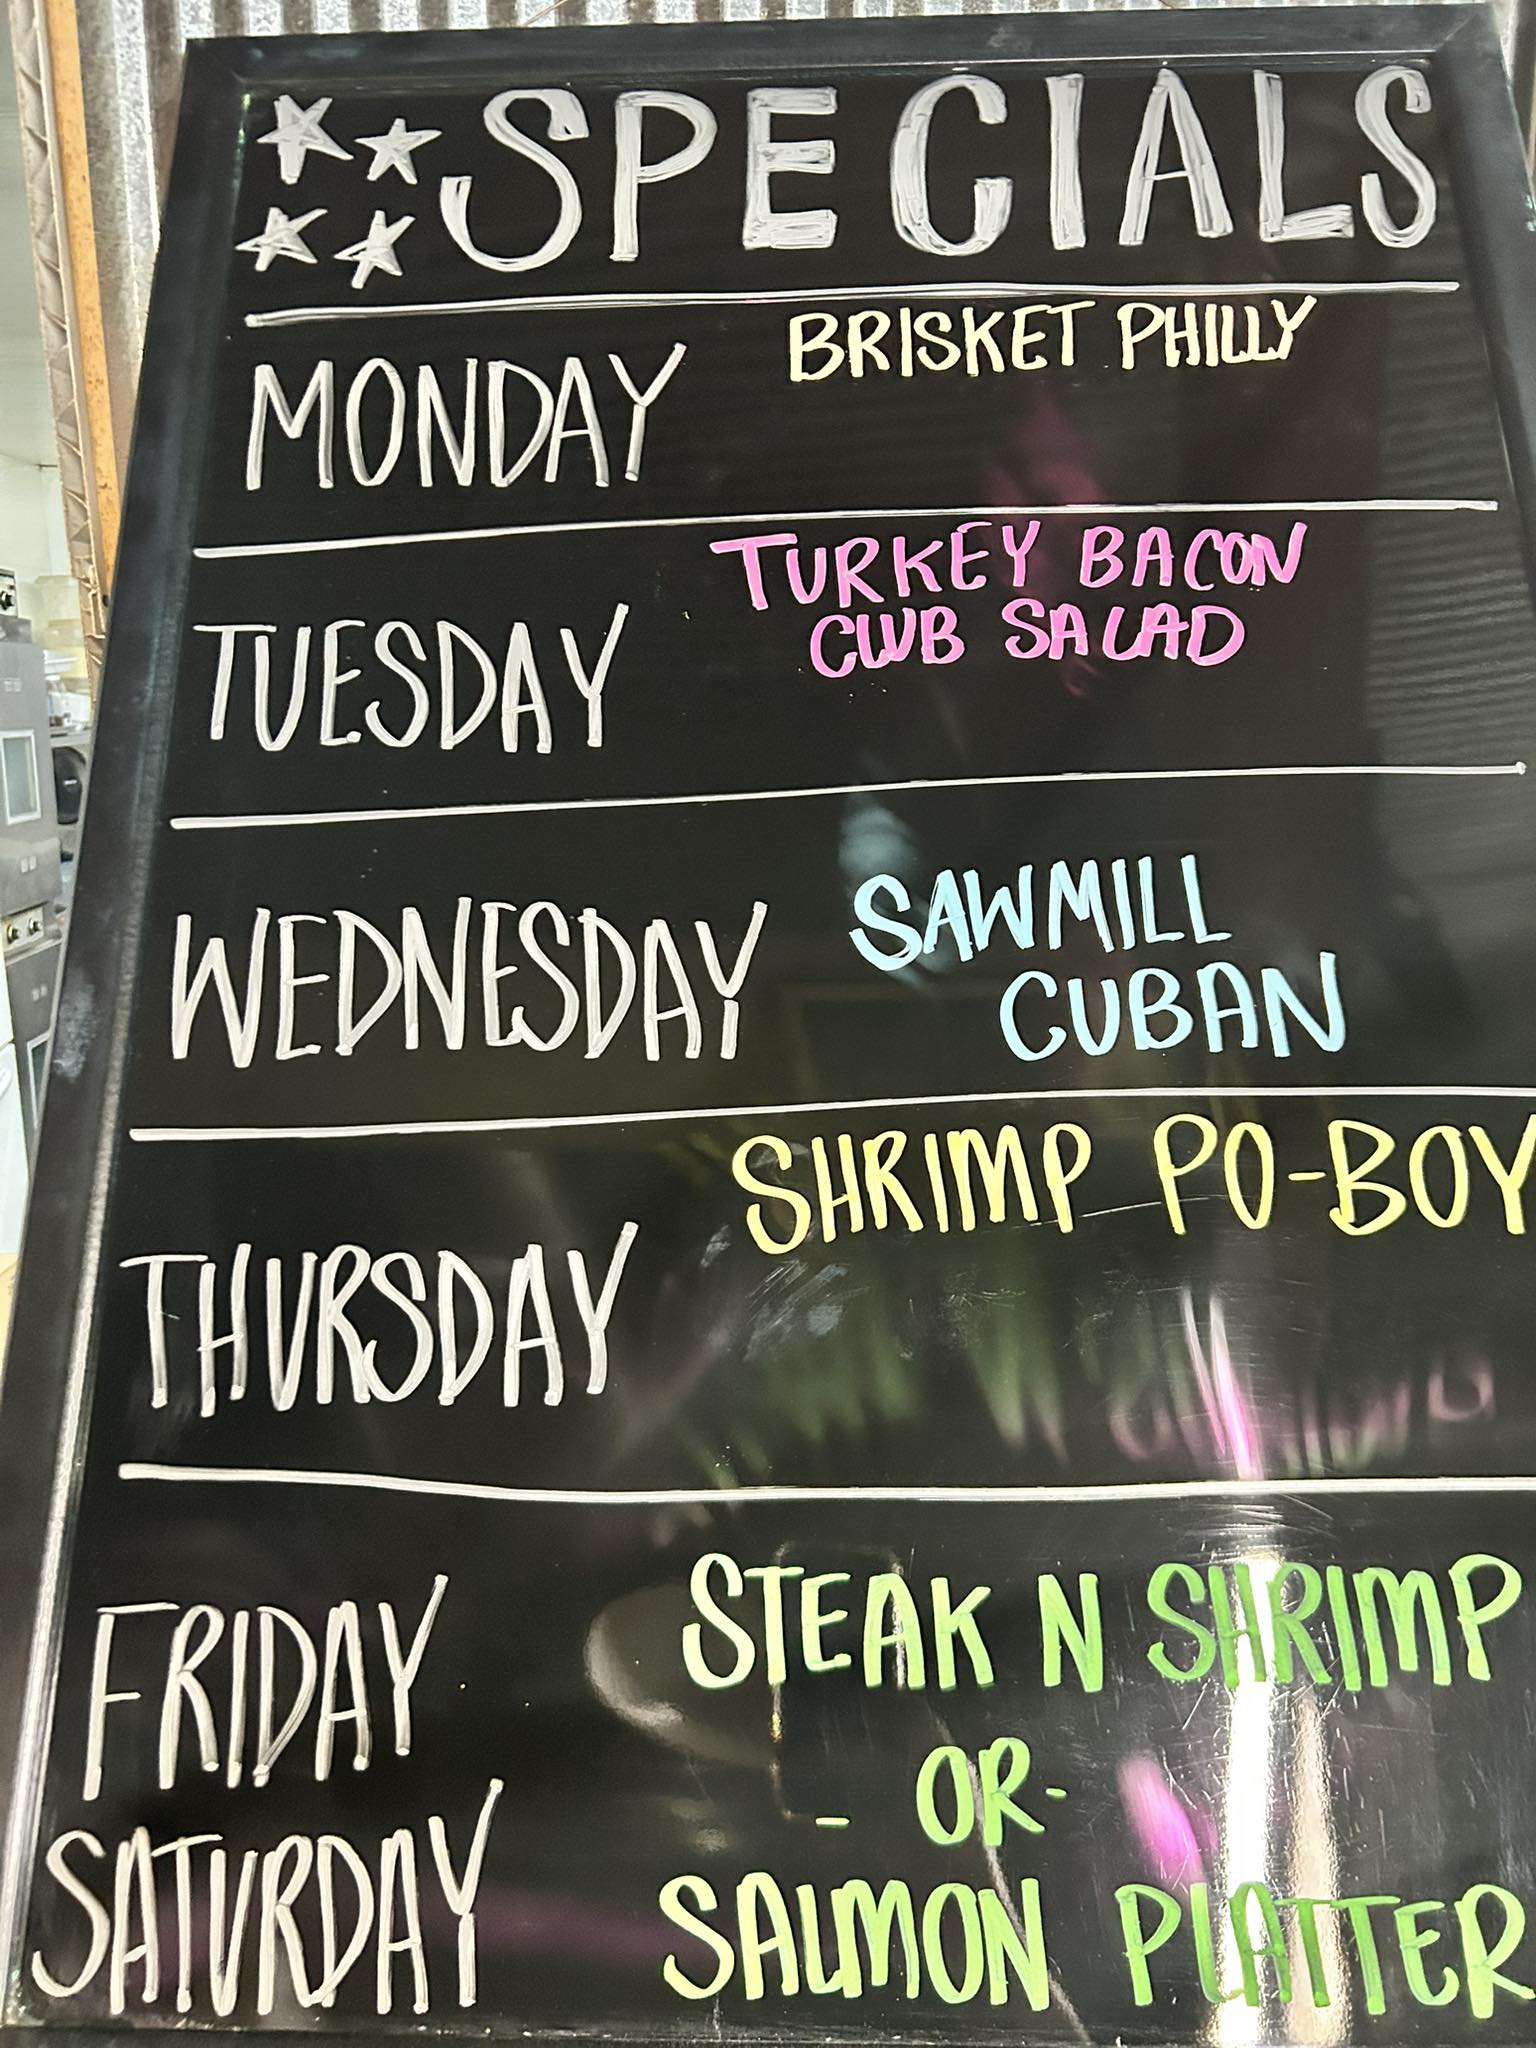 SPECIALS
MONDAY
BRISKET PHILLY
TUESDAY
TURKEY BACON
CLUB SALAD
WEDNESDAY
SAWMILL
CUBAN
THURSDAY
SHRIMP PO-BOY
FRIDAY
SATURDAY
STEAK N SHRIMP
- OR -
SALMON PLATTER